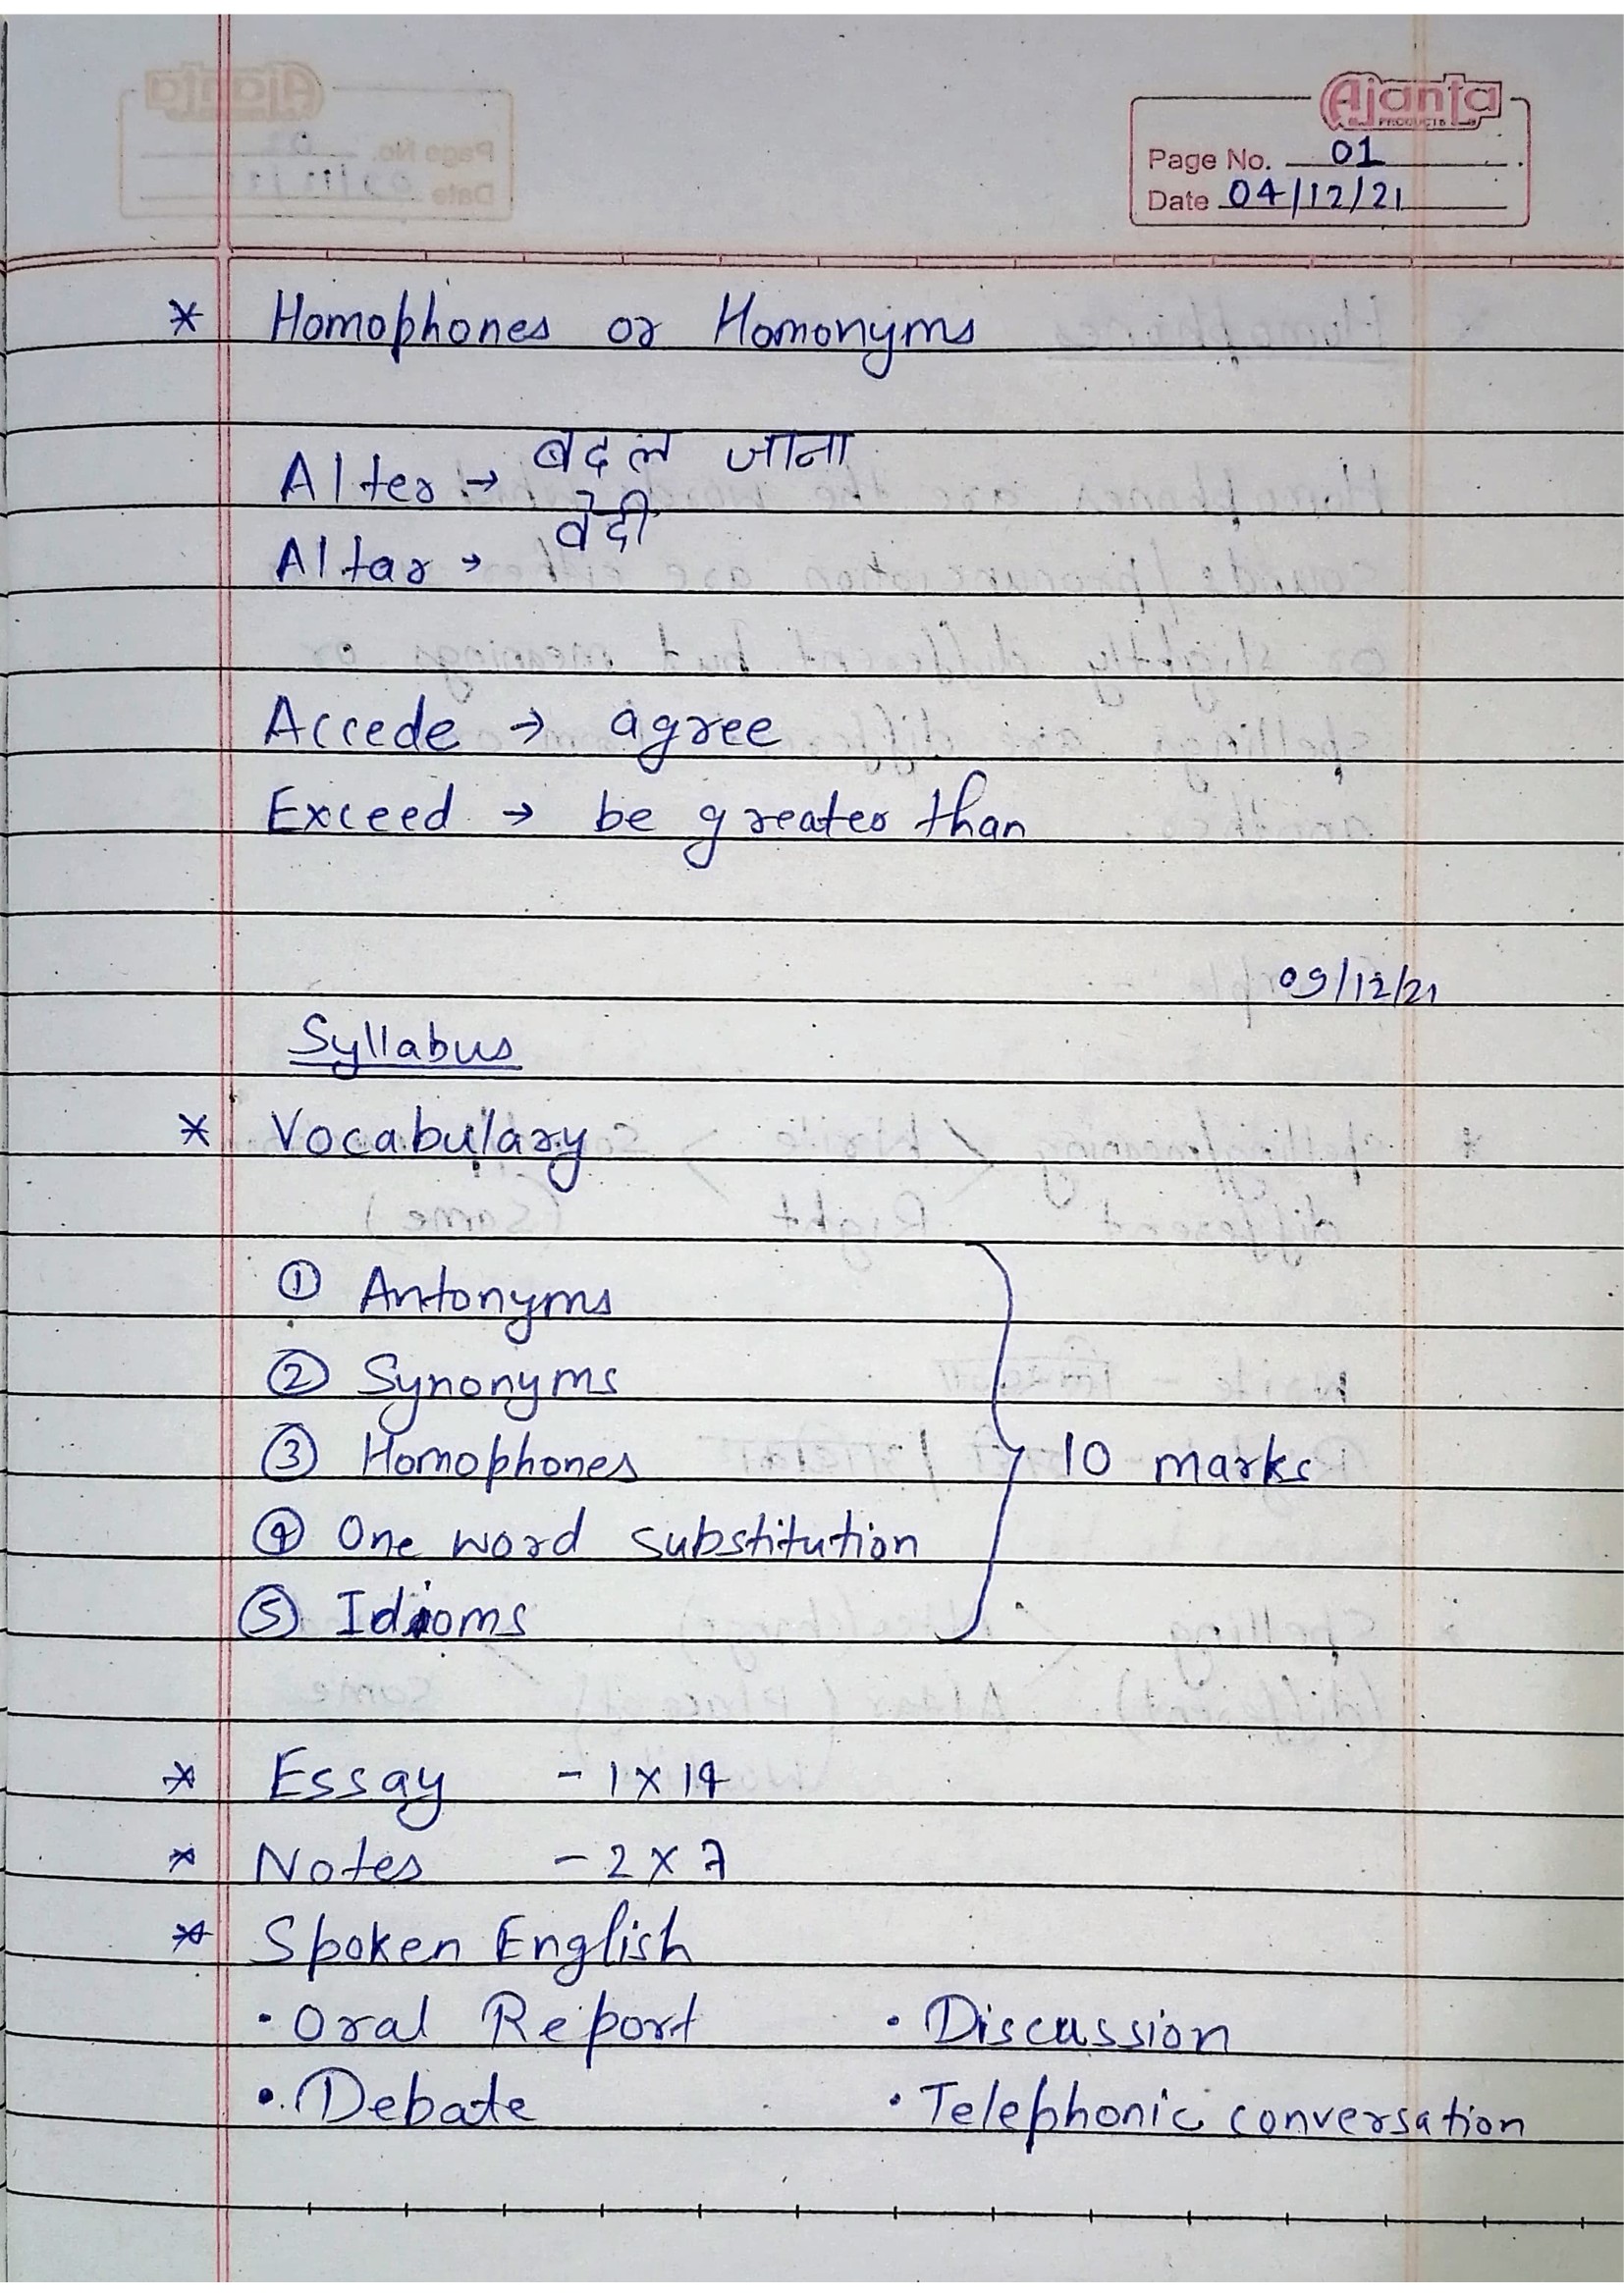 Ajanta
PRODUCTS
Page No. 01
Date 04/12/21
* Homophones or Homonyms
Alter → बदल जाना
Altar → वेदी
Accede → agree
Exceed → be greater than
09/12/21
Syllabus
* Vocabulary
① Antonyms
② Synonyms
③ Homophones
10 marks
④ One word substitution
⑤ Idioms
* Essay - 1 x 14
* Notes - 2 x 7
* Spoken English
• Oral Report • Discussion
• Debate • Telephonic conversation